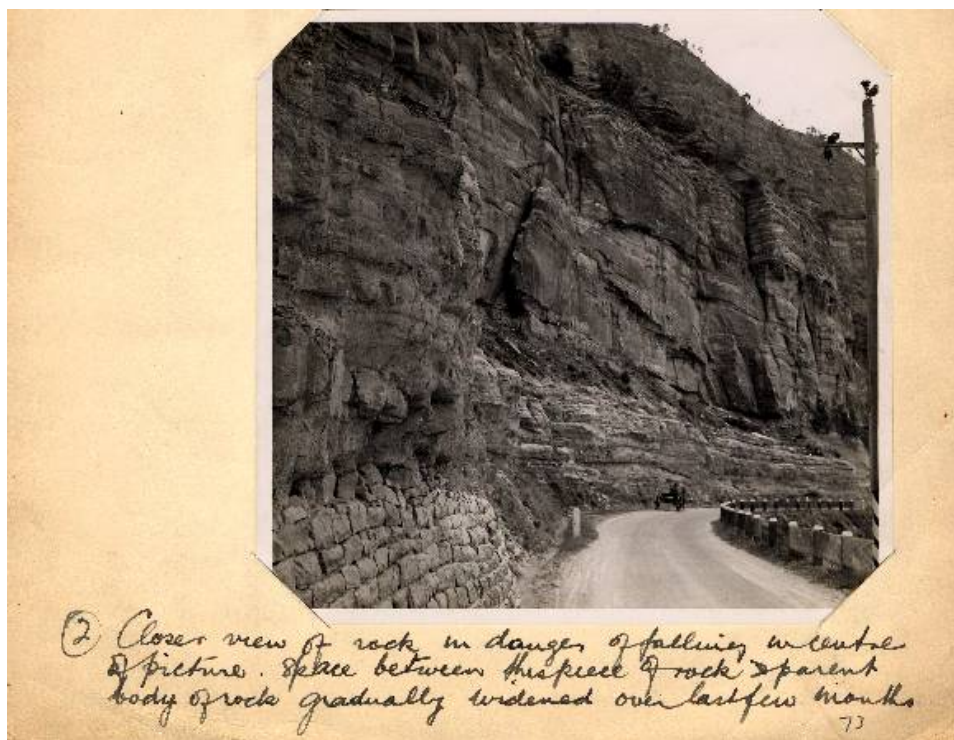 ② Closer view of rock in danger of falling in centre
of picture. Space between this piece of rock & parent
body of rock gradually widened over last few months
73